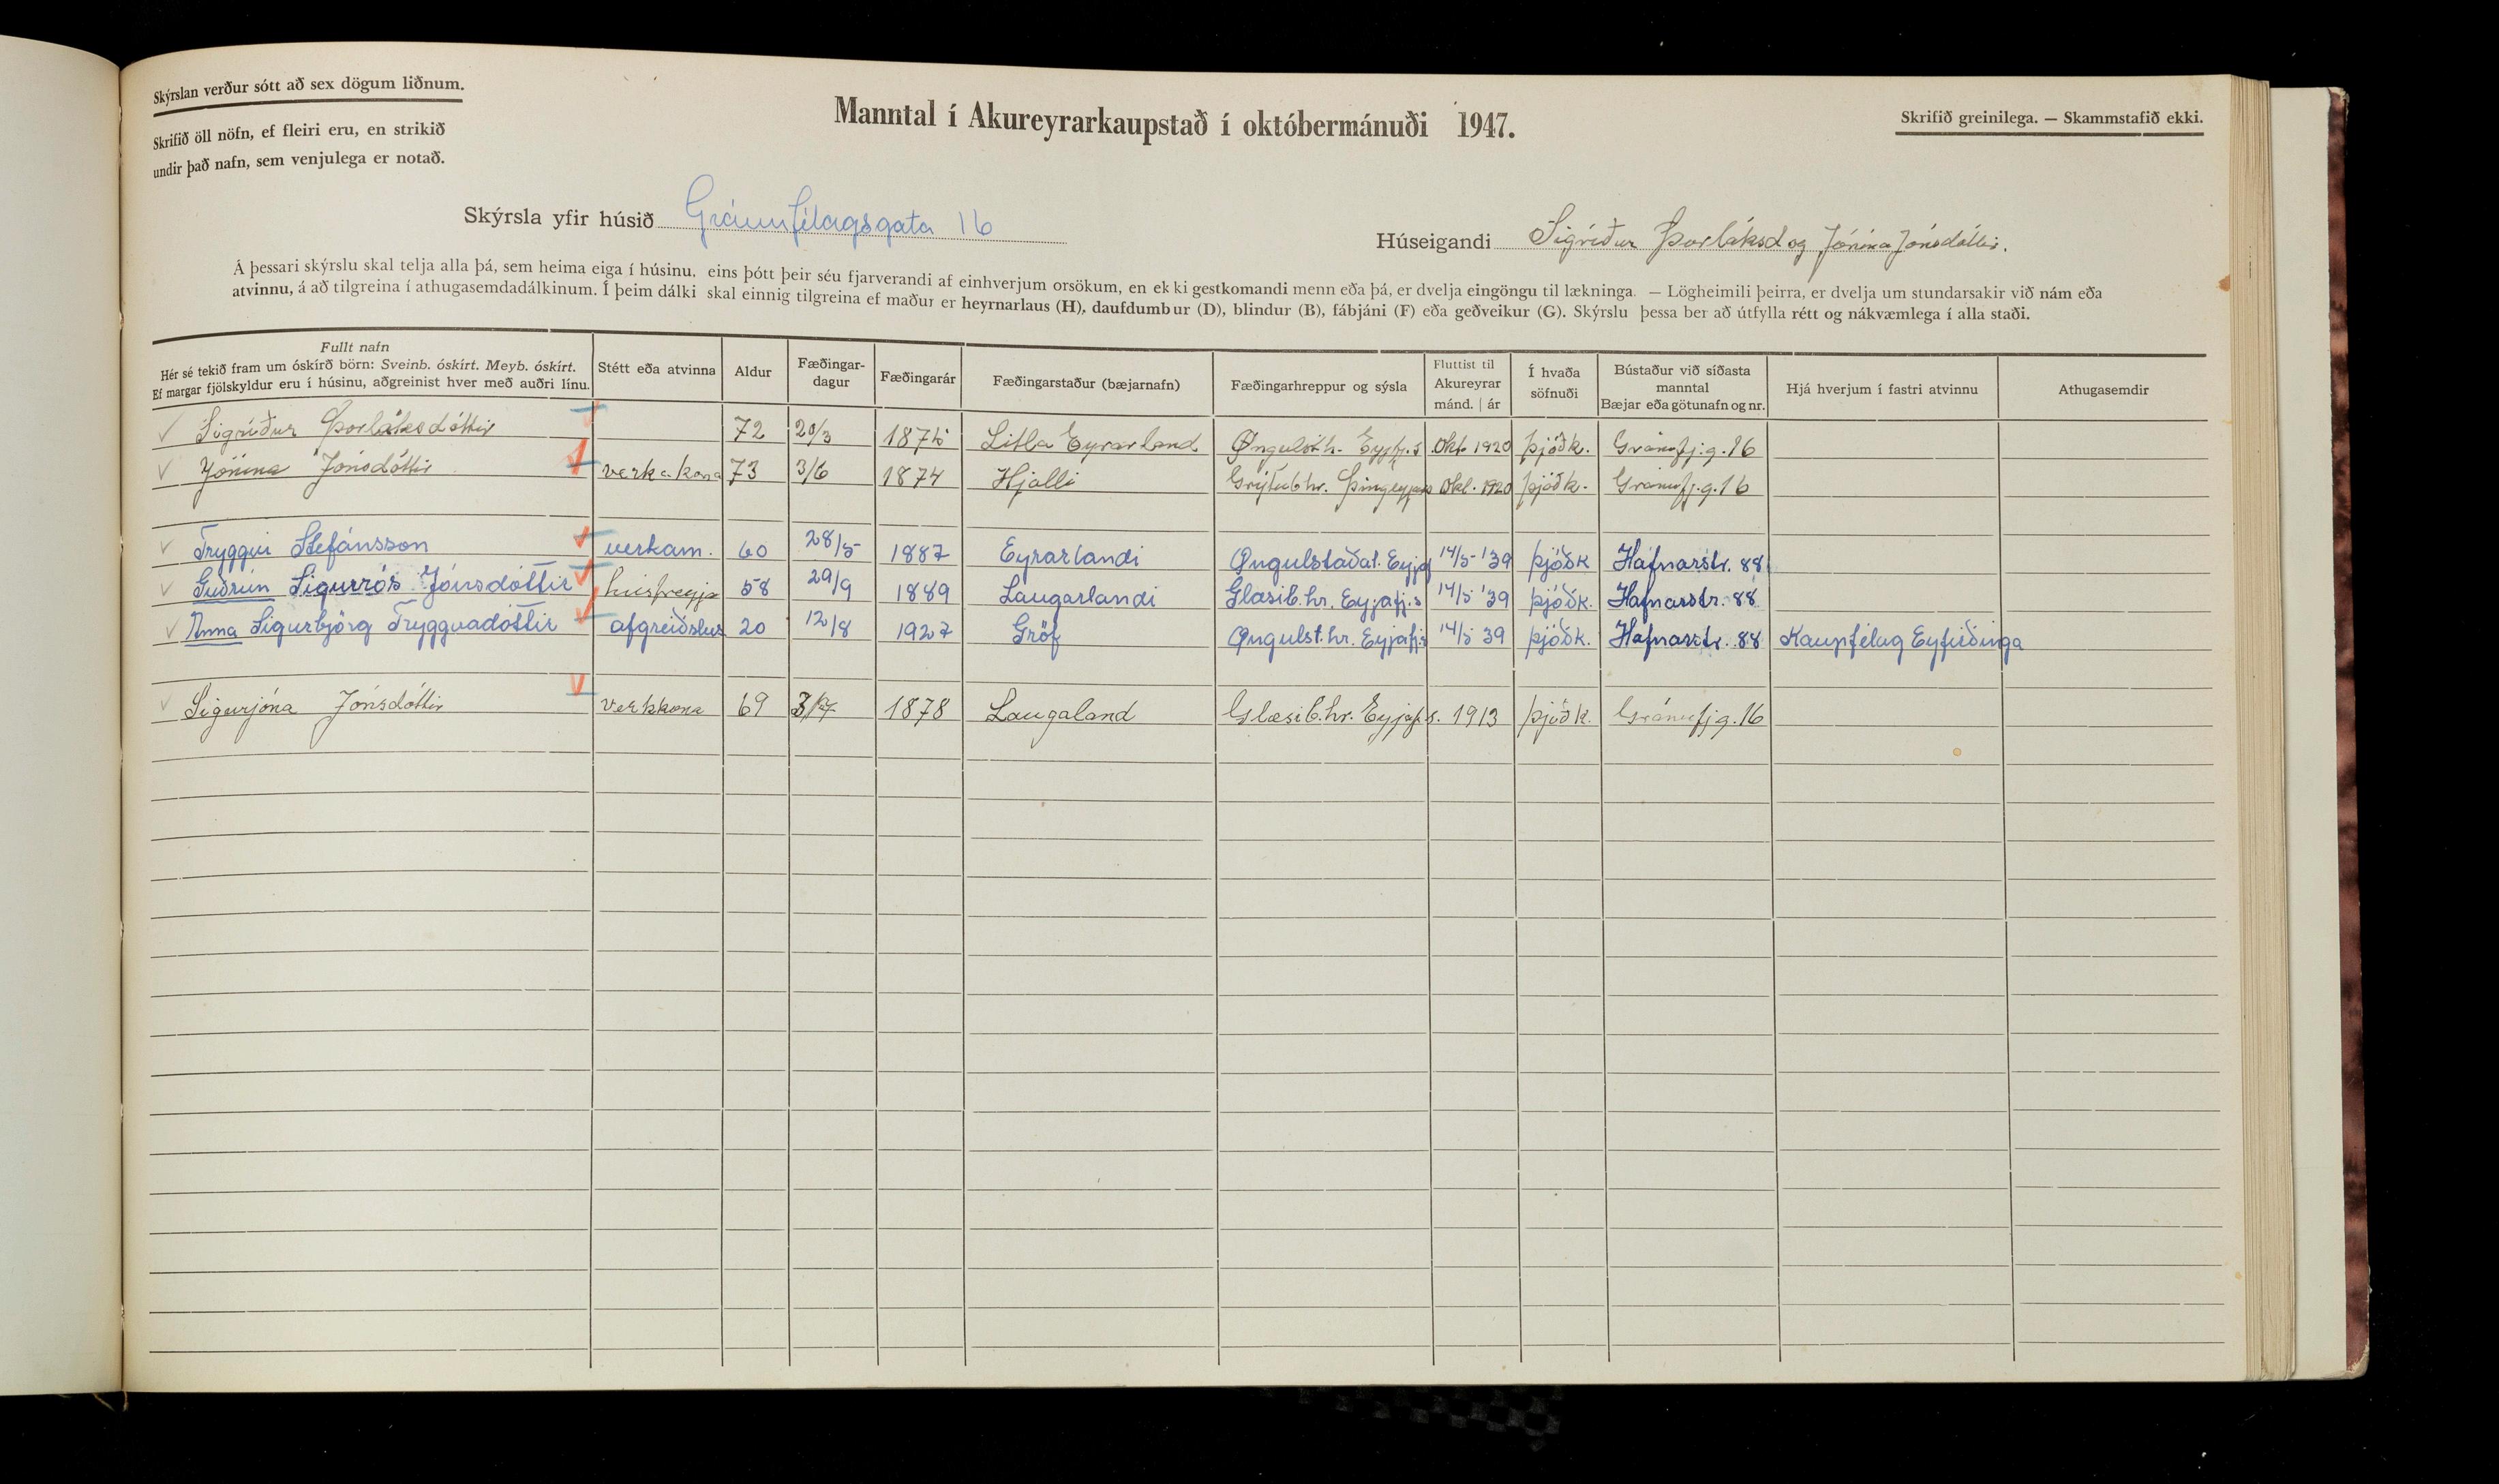 Skýrslan verður sótt að sex dögum liðnum.
Skrifið öll nöfn, ef fleiri eru, en strikið
undir það nafn, sem venjulega er notað.
Manntal í Akureyrarkaupstað í októbermánuði 1947.
Skrifið greinilega. — Skammstafið ekki.
Skýrsla yfir húsið Gránufélagsgata 16
Húseigandi Sigríður Þorláksd og Jónína Jónsdóttir.
Á þessari skýrslu skal telja alla þá, sem heima eiga í húsinu, eins þótt þeir séu fjarverandi af einhverjum orsökum, en ekki gestkomandi menn eða þá, er dvelja eingöngu til lækninga. — Lögheimili þeirra, er dvelja um stundarsakir við nám eða
atvinnu, á að tilgreina í athugasemdadálkinum. Í þeim dálki skal einnig tilgreina ef maður er heyrnarlaus (H), daufdumbur (D), blindur (B), fábjáni (F) eða geðveikur (G). Skýrslu þessa ber að útfylla rétt og nákvæmlega í alla staði.
Fullt nafn
Hér sé tekið fram um óskírð börn: Sveinb. óskírt. Meyb. óskírt.
Ef margar fjölskyldur eru í húsinu, aðgreinist hver með auðri línu.
Stétt eða atvinna
Aldur
Fæðingar-
dagur
Fæðingarár
Fæðingarstaður (bæjarnafn)
Fæðingarhreppur og sýsla
Fluttist til
Akureyrar
mánd. | ár
Í hvaða
söfnuði
Bústaður við síðasta
manntal
Bæjar eða götunafn og nr.
Hjá hverjum í fastri atvinnu
Athugasemdir
Sigríður Þorláksdóttir 72 20/3 Litla Eyrarland Öngulsth. Eyjfj.s Okt. 1920 þjóðk. Gránufj.g. 16
Jónína Jónsdóttir verkakona 73 3/6 1874 Hjalli Grýtubhr. Okt. 1920 þjóðk. Gránufj.g. 16
Tryggvi Stefánsson verkam. 60 28/5 1887 Eyrarlandi Öngulstaðat. Eyjafj 14/5-'39 þjóðk Hafnarstr. 88
Guðrún Sigurrós Jónsdóttir húsfreyja 58 29/9 1889 Laugarlandi Glæsib.hr. Eyjafj.s 14/5 '39 þjóðk. Hafnarstr. 88
Anna Sigurbjörg Tryggvadóttir afgreiðslust 20 12/8 1927 Gröf Öngulst.hr. Eyjafj.s 14/5 39 þjóðk. Hafnarstr. 88 Kaupfélag Eyfirðinga
Sigurjóna Jónsdóttir verkkona 69 3/7 1878 Laugaland Glæsib.hr. Eyjafj.s. 1913 þjóðk. Gránufj g. 16